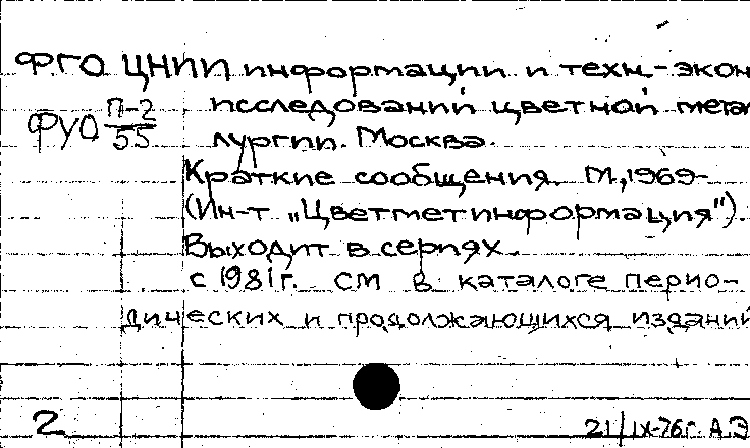 ФГО ЦНИИ информации и техн.-экон
исследований цветной метал
ФУО П-2/55
лургии. Москва.
Краткие сообщения. М., 1969-
(Ин-т „Цветметинформация").
Выходит в сериях.
с 1981г. см в каталоге перио-
дических и продолжающихся изданий
2
21/IX-76г. А.Э